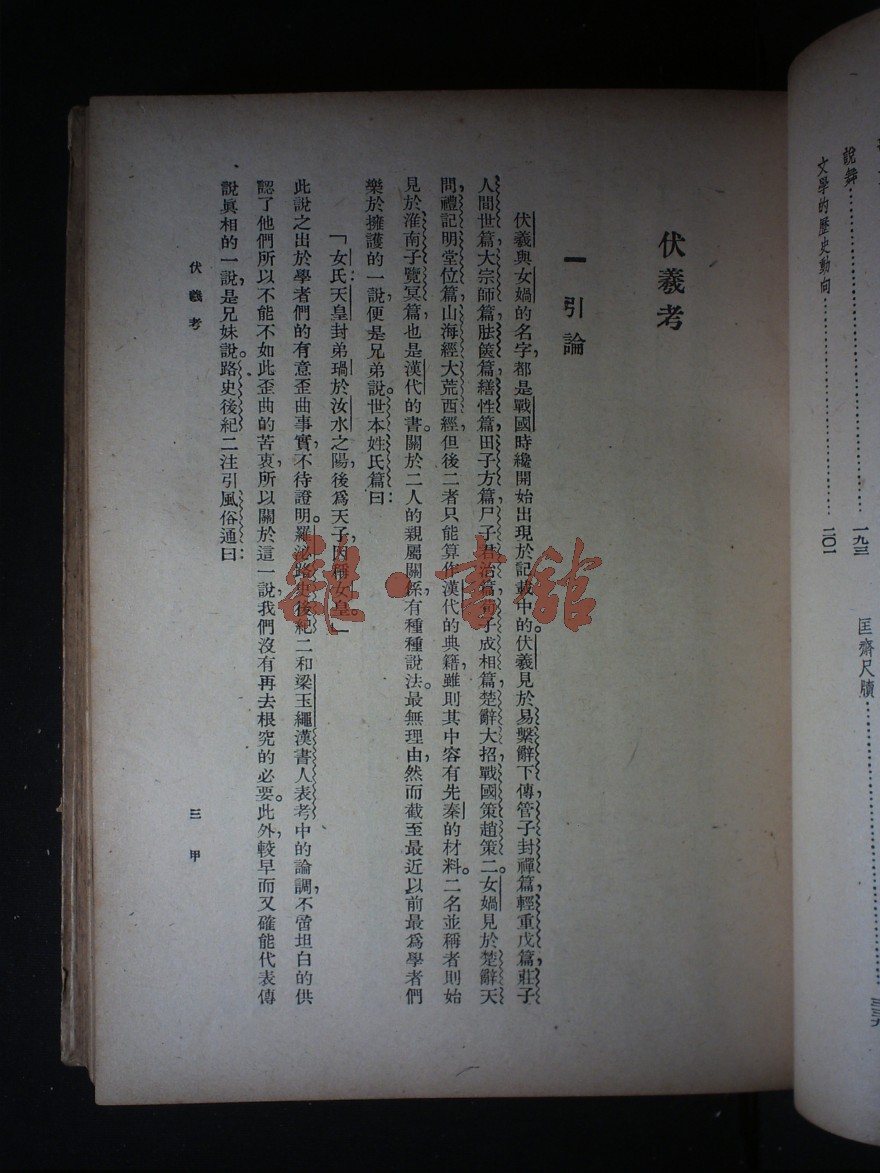 說舞……………………一九三
文學的歷史動向……………………二〇一
匡齋尺牘……………………三三九
伏羲考
一 引論
伏羲與女媧的名字,都是戰國時纔開始出現於記載中的。伏羲見於易繫辭下傳,管子封禪篇,輕重戊篇,莊子
人間世篇,大宗師篇,胠篋篇,繕性篇,田子方篇,尸子君治篇,荀子成相篇,楚辭大招,戰國策趙策二。女媧見於楚辭天
問,禮記明堂位篇,山海經大荒西經,但後二者只能算作漢代的典籍,雖則其中容有先秦的材料。二名並稱者則始
見於淮南子覽冥篇,也是漢代的書。關於二人的親屬關係,有種種說法。最無理由,然而截至最近以前最爲學者們
樂於擁護的一說,便是兄弟說。世本姓氏篇曰:
「女氏:天皇封弟㛂於汝水之陽,後爲天子,因稱女皇。」
此說之出於學者們的有意歪曲事實,不待證明。羅泌路史後紀二和梁玉繩漢書人表考中的論調,不啻坦白的供
認了他們所以不能不如此歪曲的苦衷,所以關於這一說,我們沒有再去根究的必要。此外,較早而又確能代表傳
說眞相的一說,是兄妹說。路史後紀二注引風俗通曰:
伏羲考
三 甲
雜·書館